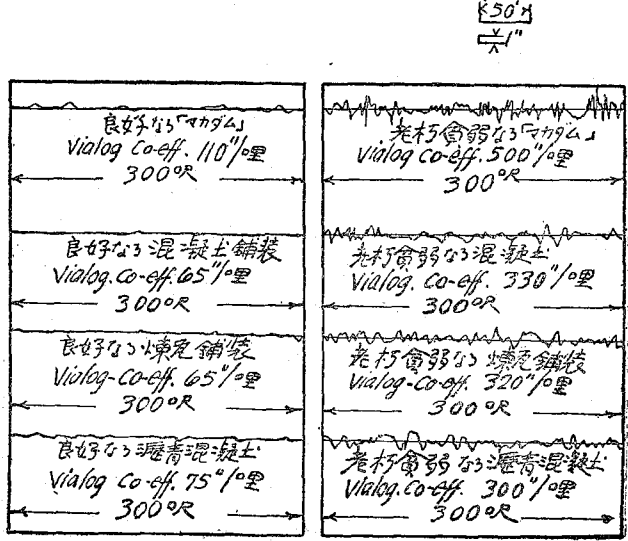 50'
1"
良好なる「マカダム」
Vialog Co-eff. 110"/哩
300呎
良好なる混凝土鋪装
Vialog. Co-eff. 65"/哩
300呎
良好なる煉瓦鋪装
Vialog-Co-eff. 65"/哩
300呎
良好なる瀝青混凝土
Vialog Co-eff. 75"/哩
300呎
老朽貧弱なる「マカダム」
Vialog Co-eff. 500"/哩
300呎
老朽貧弱なる混凝土
Vialog. Co-eff. 330"/哩
300呎
老朽貧弱なる煉瓦鋪装
Vialog-Co-eff. 320"/哩
300呎
老朽貧弱なる瀝青混凝土
Vialog. Co-eff. 300"/哩
300呎